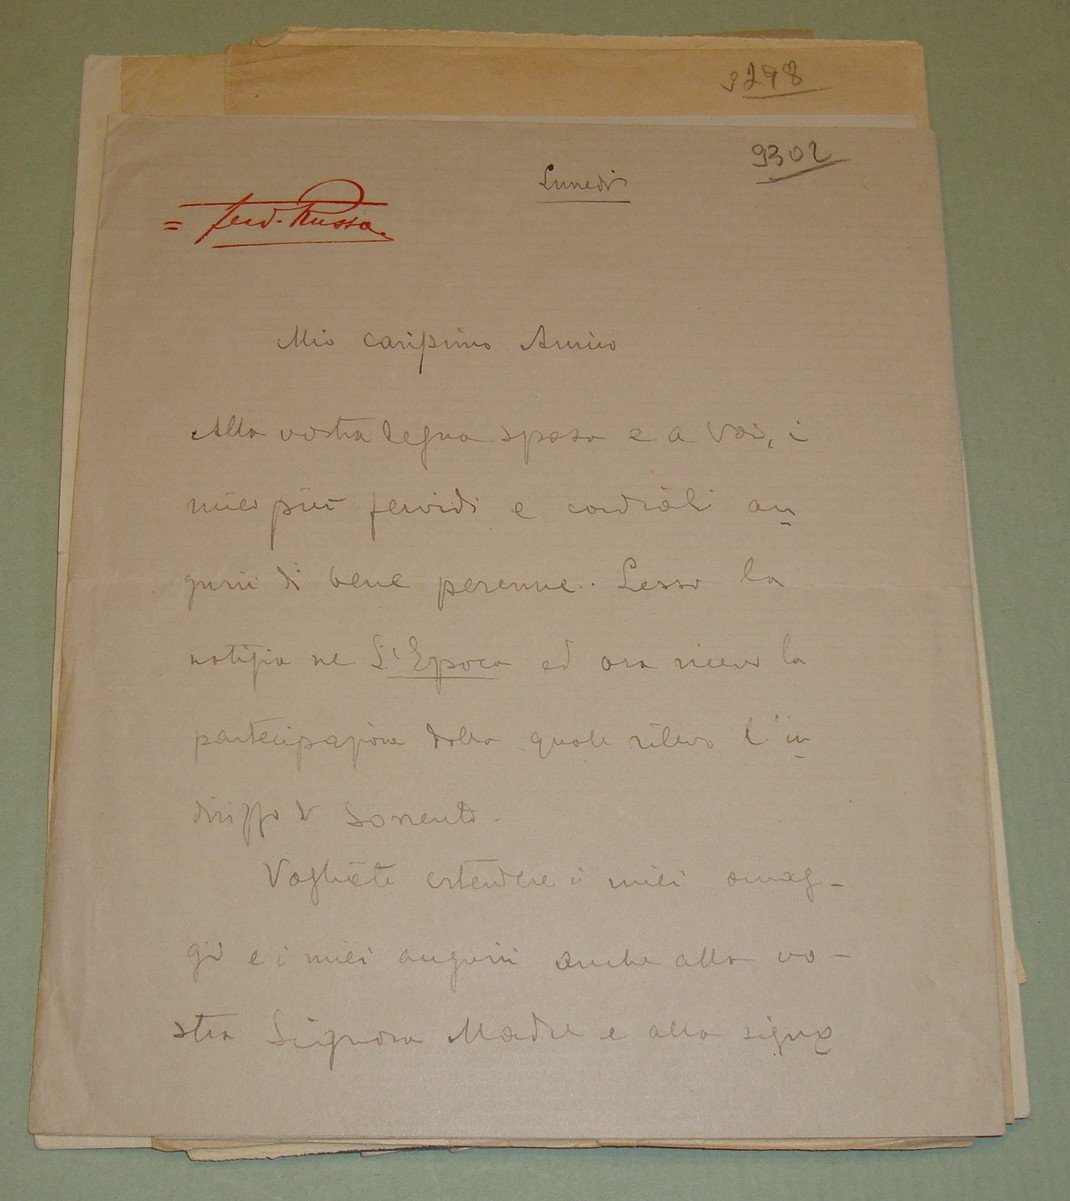 9298
9302
Lunedì
= Ferd. Russo.
Mio carissimo Amico
Alla vostra degna sposa e a Voi, i
miei più fervidi e cordiali au-
gurii di bene perenne. Lessi la
notizia ne L'Epoca ed ora ricevo la
partecipazione dalla quale rilevo l'in-
dirizzo di Sorrento.
Vogliate estendere i miei omag-
gi e i miei augurii anche alla vo-
stra Signora Madre e alla signa